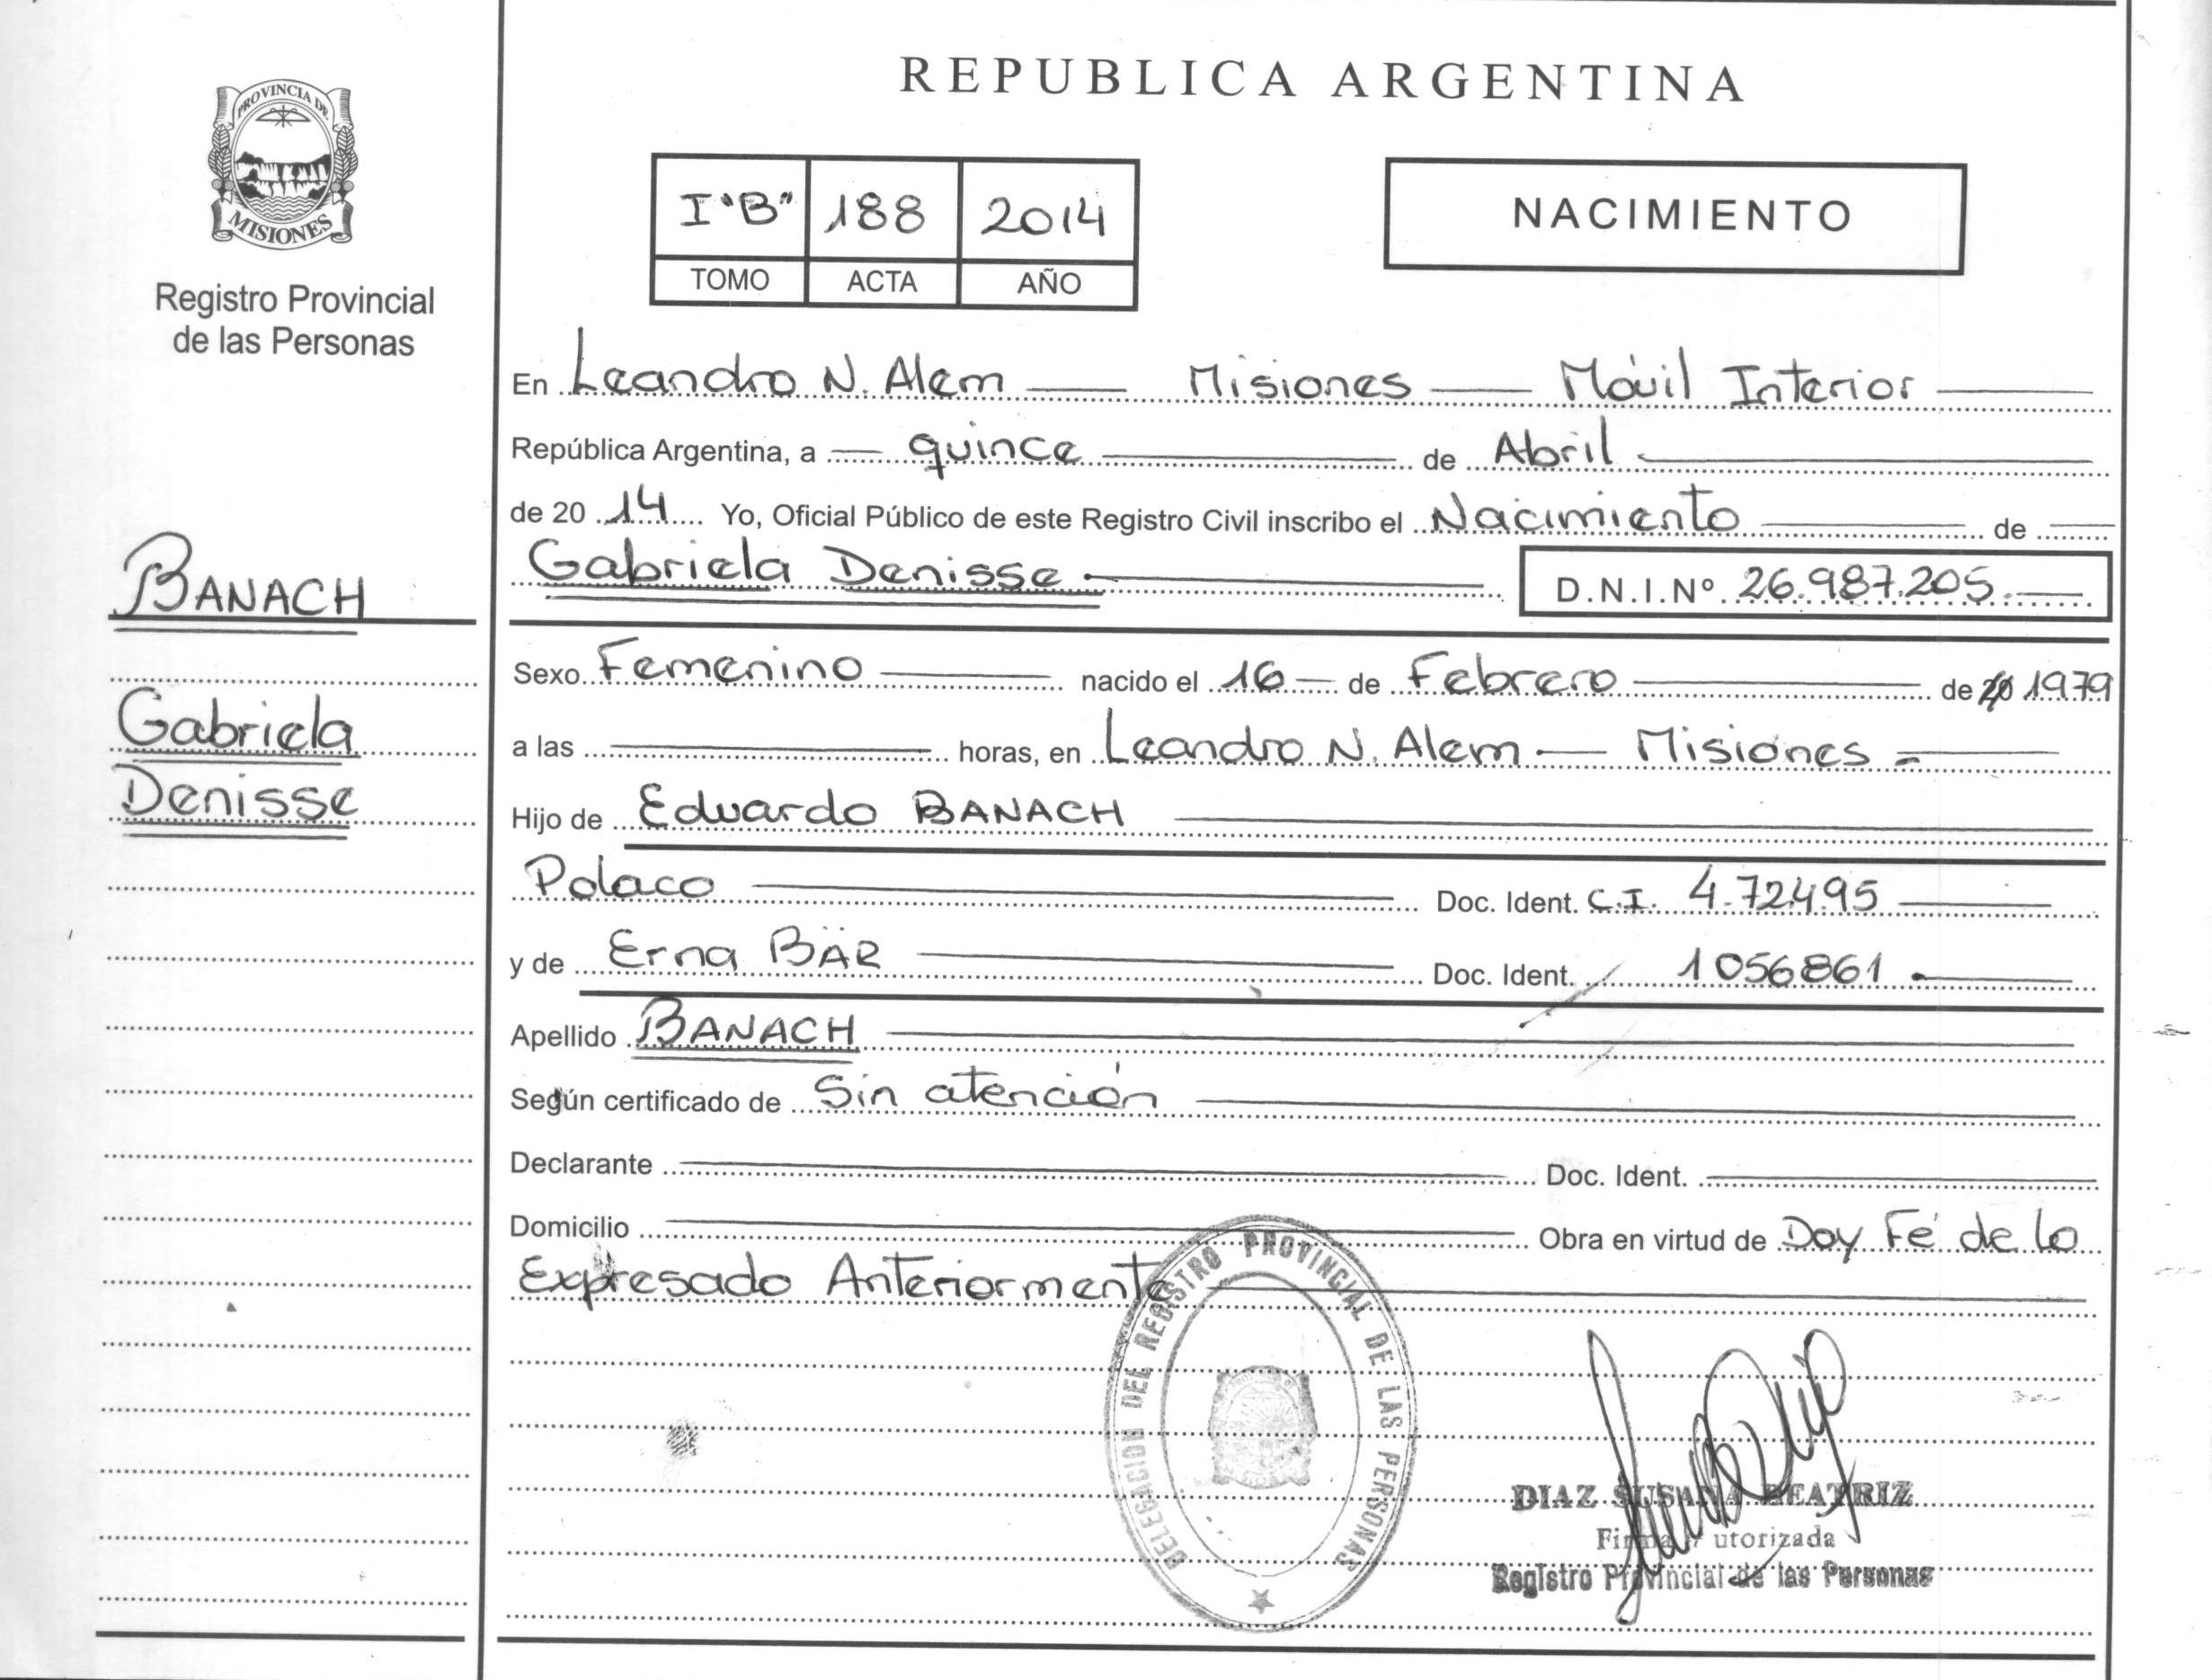 REPUBLICA ARGENTINA
PROVINCIA DE
MISIONES
Registro Provincial
de las Personas
I "B" 188 2014
TOMO ACTA AÑO
NACIMIENTO
En Leandro N. Alem Misiones Móvil Interior
República Argentina, a quince de Abril
de 2014 Yo, Oficial Público de este Registro Civil inscribo el Nacimiento de
Gabriela Denisse D.N.I.Nº 26.987.205.
BANACH
Gabriela
Denisse
Sexo Femenino nacido el 16 de Febrero de 20 1979
a las horas, en Leandro N. Alem Misiones
Hijo de Eduardo BANACH
Polaco Doc. Ident. C.I. 4.72495
y de Erna BÄR Doc. Ident. 1056861
Apellido BANACH
Según certificado de Sin atención
Declarante Doc. Ident.
Domicilio Obra en virtud de Doy Fé de lo
Expresado Anteriormente
DELEGACION DEL REGISTRO PROVINCIAL DE LAS PERSONAS
DIAZ SUSANA BEATRIZ
Firma Autorizada
Registro Provincial de las Personas